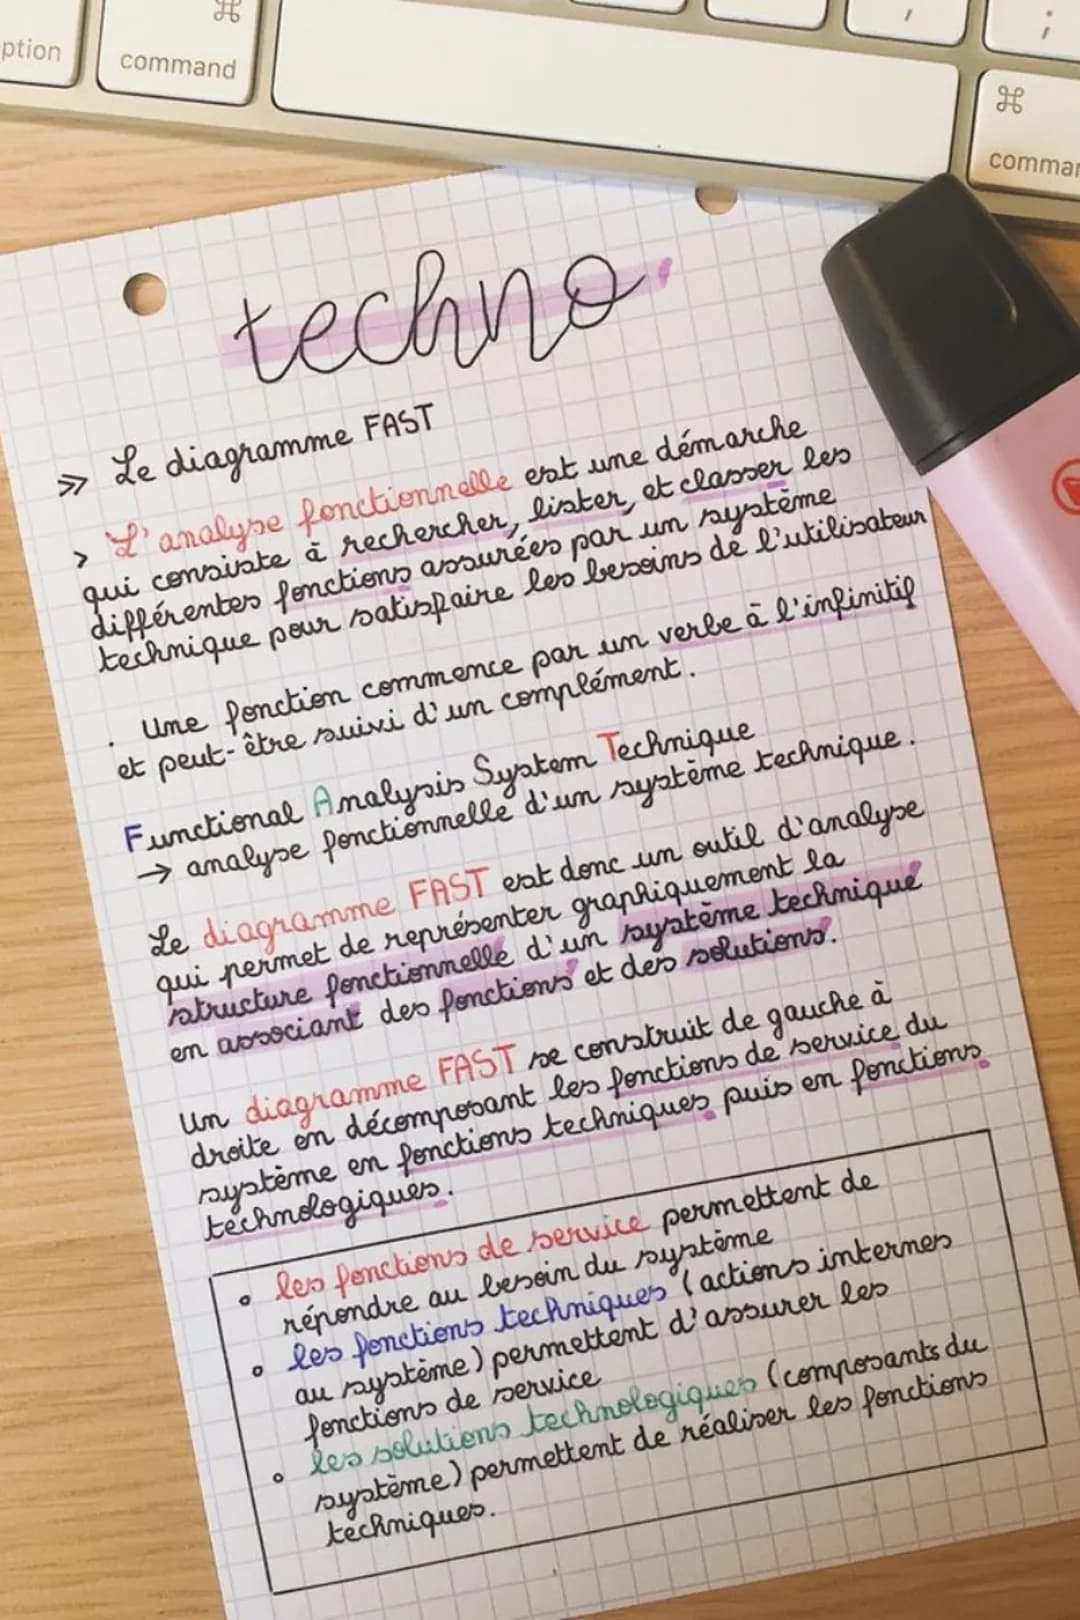 ption
⌘
command
,
;
⌘
comman
techno
>> Le diagramme FAST
> L'analyse fonctionnelle est une démarche
qui consiste à rechercher, lister, et classer les
différentes fonctions assurées par un système
technique pour satisfaire les besoins de l'utilisateur
. Une fonction commence par un verbe à l'infinitif
et peut-être suivi d'un complément.
Functional Analysis System Technique
→ analyse fonctionnelle d'un système technique.
Le diagramme FAST est donc un outil d'analyse
qui permet de représenter graphiquement la
structure fonctionnelle d'un système technique
en associant des fonctions et des solutions.
Un diagramme FAST se construit de gauche à
droite en décomposant les fonctions de service du
système en fonctions techniques puis en fonctions
technologiques.
° les fonctions de service permettent de
répondre au besoin du système
° les fonctions techniques (actions internes
au système) permettent d'assurer les
fonctions de service
° les solutions technologiques (composants du
système) permettent de réaliser les fonctions
techniques.